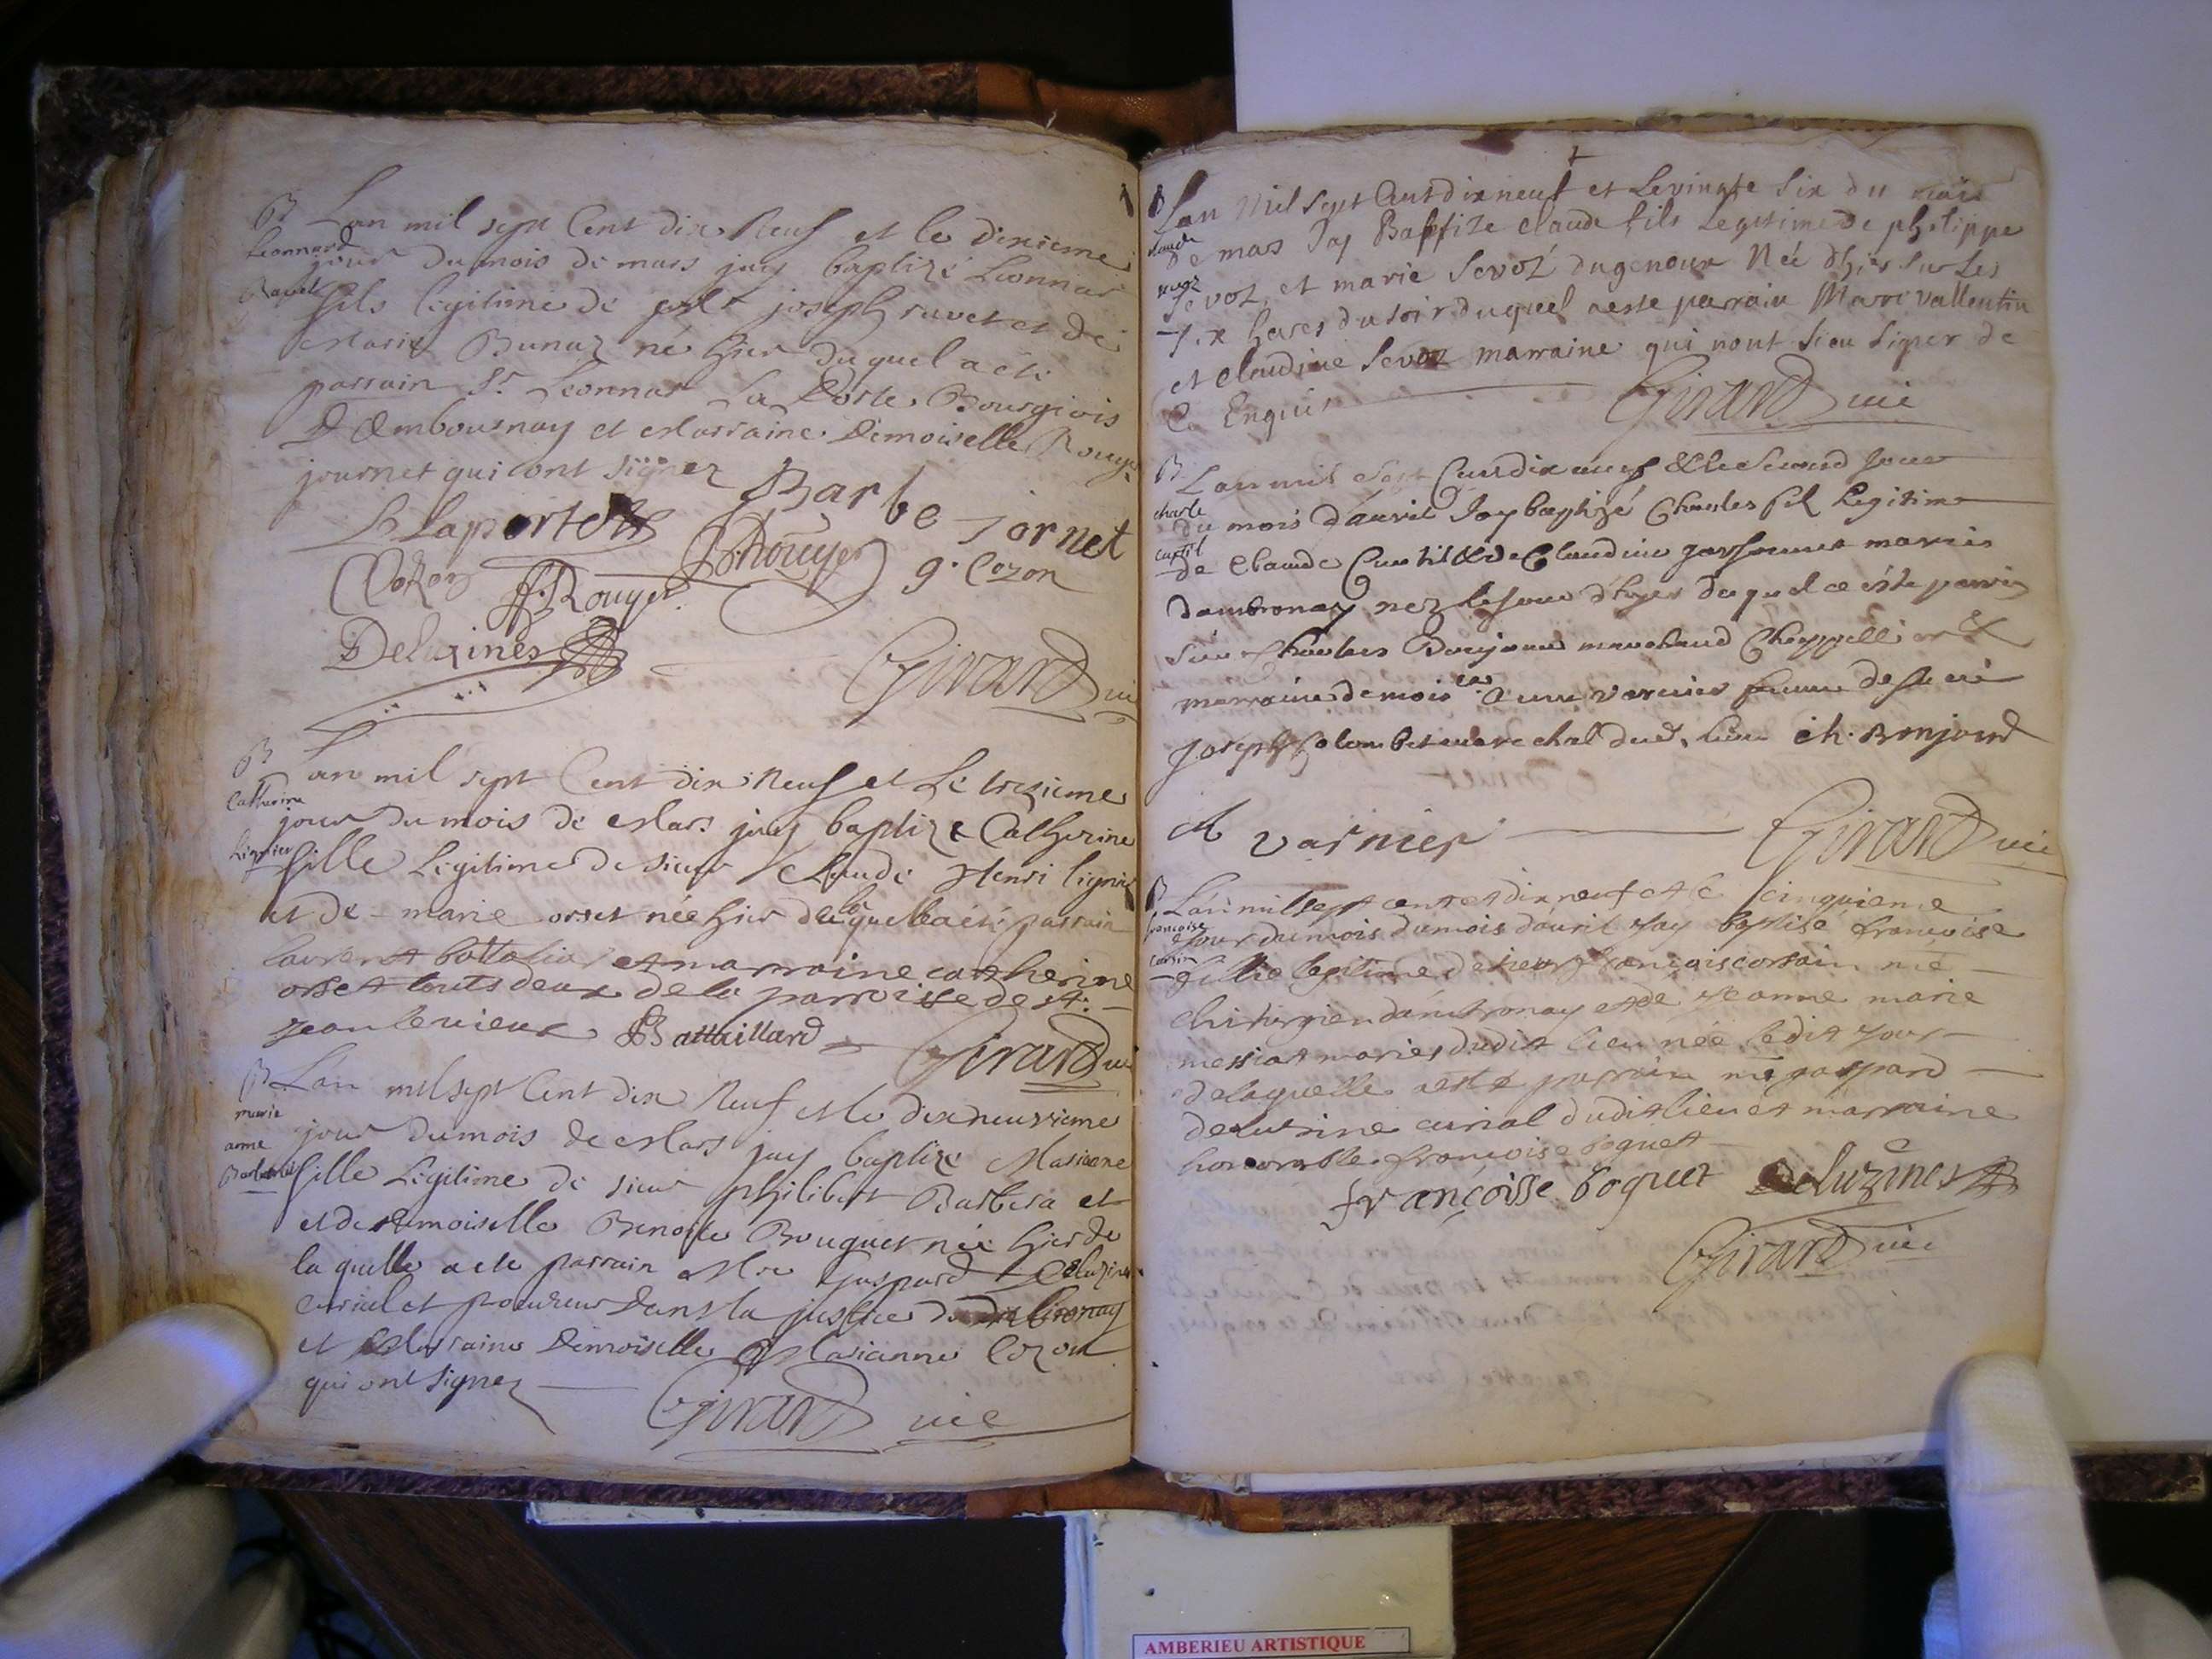 B
Leonnard
Ravet
Lan mil sept Cent dix Neuf et le dixieme
jour du mois de mars jay baptizé Leonnar
fils legitime de joseph ravet et de
Marie Bunaz né hier duquel a eté
parrain Sr. Leonnar La Porte Bourgiois
D'Embournay et Marraine Demoiselle Rouye
journet qui ont signez
Barbe Jornet
Laporte
Rouyer
g. Cozon
Cozon
J. Rouyer
Deluzines
Girard vic
B
Catherine
Lignier
Lan mil sept Cent dix Neuf et Le trezieme
jour du mois de Mars jay baptize Catherine
fille Legitime de sieur Claude Henri lignier
et de marie orset née hier de laquelle a eté parrain
laurent battaliar et marraine catherine
orset touts deux de la parroisse de st.
jean le vieux Battaillard Girard vic
B
marie
anne
Barbera
Lan mil sept Cent dix Neuf et le dixneuvieme
jour du mois de Mars jay baptizé Marianne
fille Legitime de sieur philibert Barbera et
et de demoiselle Benoite Bouquet née hier de
la quelle a ete parrain Mre Gaspard Deluzines
curial et procureur dans la justice dambronay
et Marraine Demoiselle Marianne Cozon
qui ont signez Girard vic
B
claude
sevoz
Lan Mil Sept Cent dix neuf et Le vingte Six du mois
de mars Jay Baptize claude fils Legitime de philippe
Sevoz, et marie Sevoz dugenoux Née dhier sur Les
six heures du soir duquel a este parrain Marc vallentin
et claudine Sevoz marraine qui nont sceu signer de
ce Enquis Girard vic
B
charle
curtil
Lan mil Sept Cent dix neuf & le Second Jour
du mois d'auril Jay baptizé Charles fil Legitime
de Claude Curtil & de Claudine maries
dambronay nez le jour d'hyer duquel a esté parrin
Sieur Charles Bonjour marchand Chappellier &
marraine demoislle Anne varnier femme de sieur
Joseph Colombet marechal dud. lieu ch. Bonjourd
A varnier Girard vic
B
francoise
corsin
Lan mil sept cent et dix neuf et le cinquieme
jour du mois du mois dauril jay baptisé francoise
fillie legitime de sieur francois corsain mé
chirurgien dambronay et de jeanne marie
messiat maries dudit lieu née ledit jour
de laquelle a esté parrain mé gaspard
deluzine curial dudit lieu et marraine
honorable francoise boguet
françoisse boguet Deluzines
Girard vic
AMBERIEU ARTISTIQUE